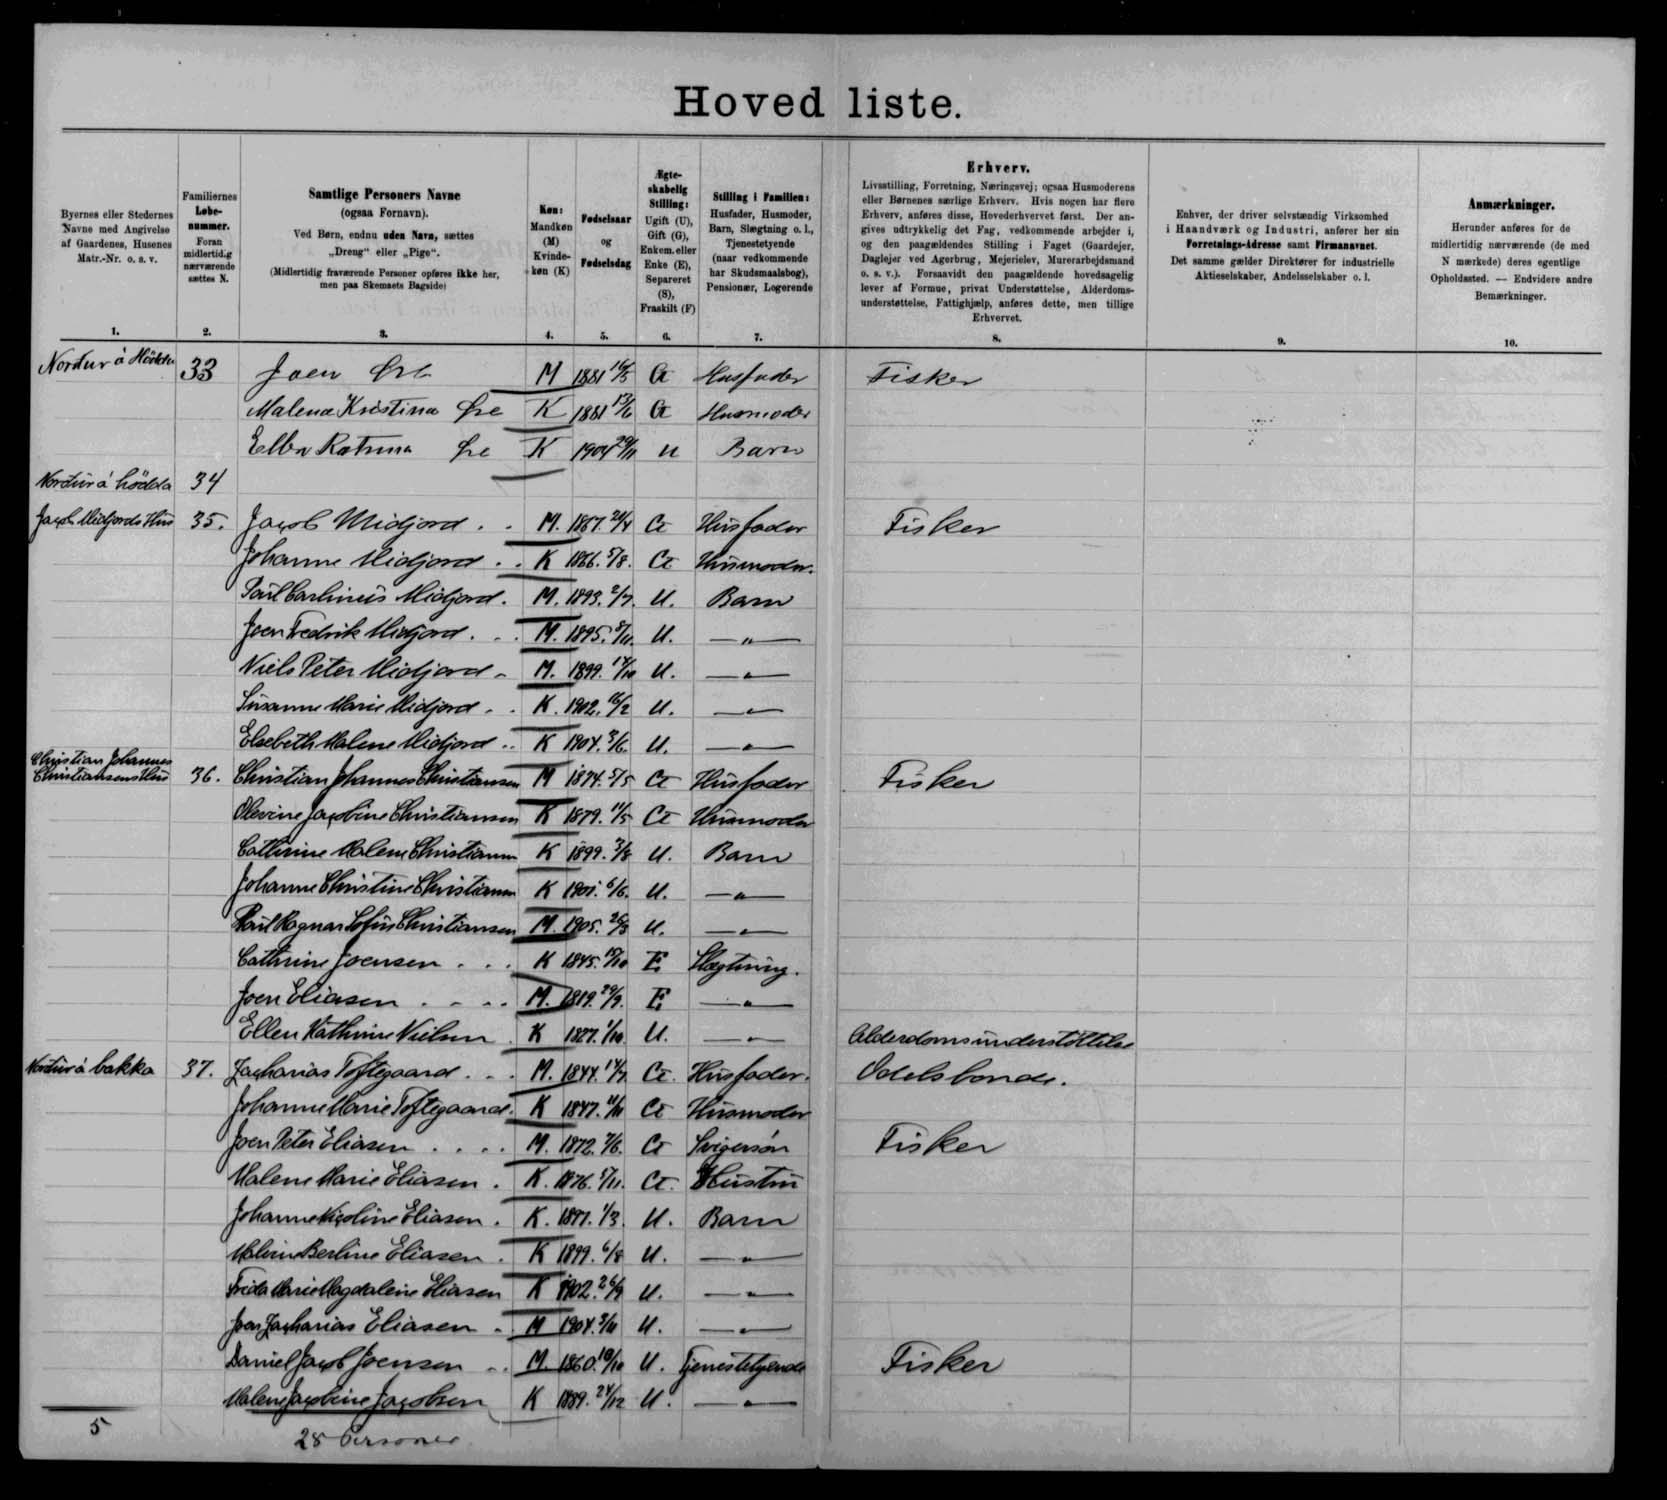 Hoved liste.
Byernes eller Stedernes Navne med Angivelse af Gaardenes, Husenes Matr.-Nr. o. s. v.
Familiernes Løbenummer. Foran midlertidig nærværende sættes N.
Samtlige Personers Navne (ogsaa Fornavn). Ved Børn, endnu uden Navn, sættes „Dreng“ eller „Pige“. (Midlertidig fraværende Personer opføres ikke her, men paa Skemaets Bagside)
Køn: Mandkøn (M) Kvindekøn (K)
Fødselsaar og Fødselsdag
Ægteskabelig Stilling: Ugift (U), Gift (G), Enkem. eller Enke (E), Separeret (S), Fraskilt (F)
Stilling i Familien: Husfader, Husmoder, Barn, Slægtning o. l., Tjenestetyende (naar vedkommende har Skudsmaalsbog), Pensionær, Logerende
Erhverv. Livsstilling, Forretning, Næringsvej; ogsaa Husmoderens eller Børnenes særlige Erhverv. Hvis nogen har flere Erhverv, anføres disse, Hovederhvervet først. Der angives udtrykkelig det Fag, vedkommende arbejder i, og den paagældendes Stilling i Faget (Gaardejer, Daglejer ved Agerbrug, Mejerielev, Murerarbejdsmand o. s. v.). Forsaavidt den paagældende hovedsagelig lever af Formue, privat Understøttelse, Alderdomsunderstøttelse, Fattighjælp, anføres dette, men tillige Erhvervet.
Enhver, der driver selvstændig Virksomhed i Haandværk og Industri, anfører her sin Forretnings-Adresse samt Firmanavnet. Det samme gælder Direktører for industrielle Aktieselskaber, Andelsselskaber o. l.
Anmærkninger. Herunder anføres for de midlertidig nærværende (de med N mærkede) deres egentlige Opholdssted. — Endvidere andre Bemærkninger.
1. 2. 3. 4. 5. 6. 7. 8. 9. 10.
Nordur á Hödda 33 Joen Øre M 1881 16/5 G Husfader Fisker
Malena Kristina Øre K 1881 13/6 G Husmoder
Elba Katrina Øre K 1904 29/11 U Barn
Nordur á hödda 34
Jacob Midjords Hus 35. Jacob Midjord . . M. 1867. 24/4 G Husfader Fisker
Johanne Midjord . . K 1866. 5/8. G Husmoder.
Poul Carlineus Midjord. M. 1893. 2/7. U. Barn
Joen Fredrik Midjord . . M. 1895. 8/11. U. —"—
Niels Peter Midjord . M. 1899. 14/10 U. —"—
Susanne Marie Midjord . . K. 1902. 16/2 U. —"—
Elsebeth Malene Midjord . . K 1904. 3/6. U. —"—
Christian Johannes Christiansens Hus 36. Christian Johannes Christiansen M 1874. 5/5 G Husfader Fisker
Olevine Jacobine Christiansen K 1879. 11/5 G Husmoder
Cathrine Malene Christiansen K 1899. 3/8 U. Barn
Johanne Christine Christiansen K 1901. 6/6. U. —"—
Poul Ragnar Sofus Christiansen M. 1905. 26/8 U. —"—
Cathrine Joensen . . . K 1845. 15/10 E Slægtning.
Joen Eliasen . . . . M. 1819. 29/9. E —"—
Ellen Kathrine Nielsen . K 1827. 1/10 U. —"— Alderdomsunderstöttelse
Nordur á bakka 37. Zacharias Toftegaard . . . M. 1844. 14/7 G. Husfader. Odelsbonde.
Johanne Marie Toftegaard. K 1847. 11/11 G Husmoder
Joen Peter Eliasen . . . . M. 1872. 7/6. G Svigersön Fisker
Malene Marie Eliasen . K. 1876. 5/11. G. Hustru
Johanne Nicoline Eliasen . K. 1897. 1/3. U. Barn
Malvine Berline Eliasen . K 1899. 6/8 U. —"—
Frida Marie Magdalene Eliasen K 1902. 26/9 U. —"—
Joen Zacharias Eliasen . M 1904. 3/11 U. —"—
Daniel Jacob Joensen . . M. 1860. 10/10 U. Tjenestetyende Fisker
Malene Jacobine Jacobsen K 1889. 24/12 U. —"—
5
28 Personer